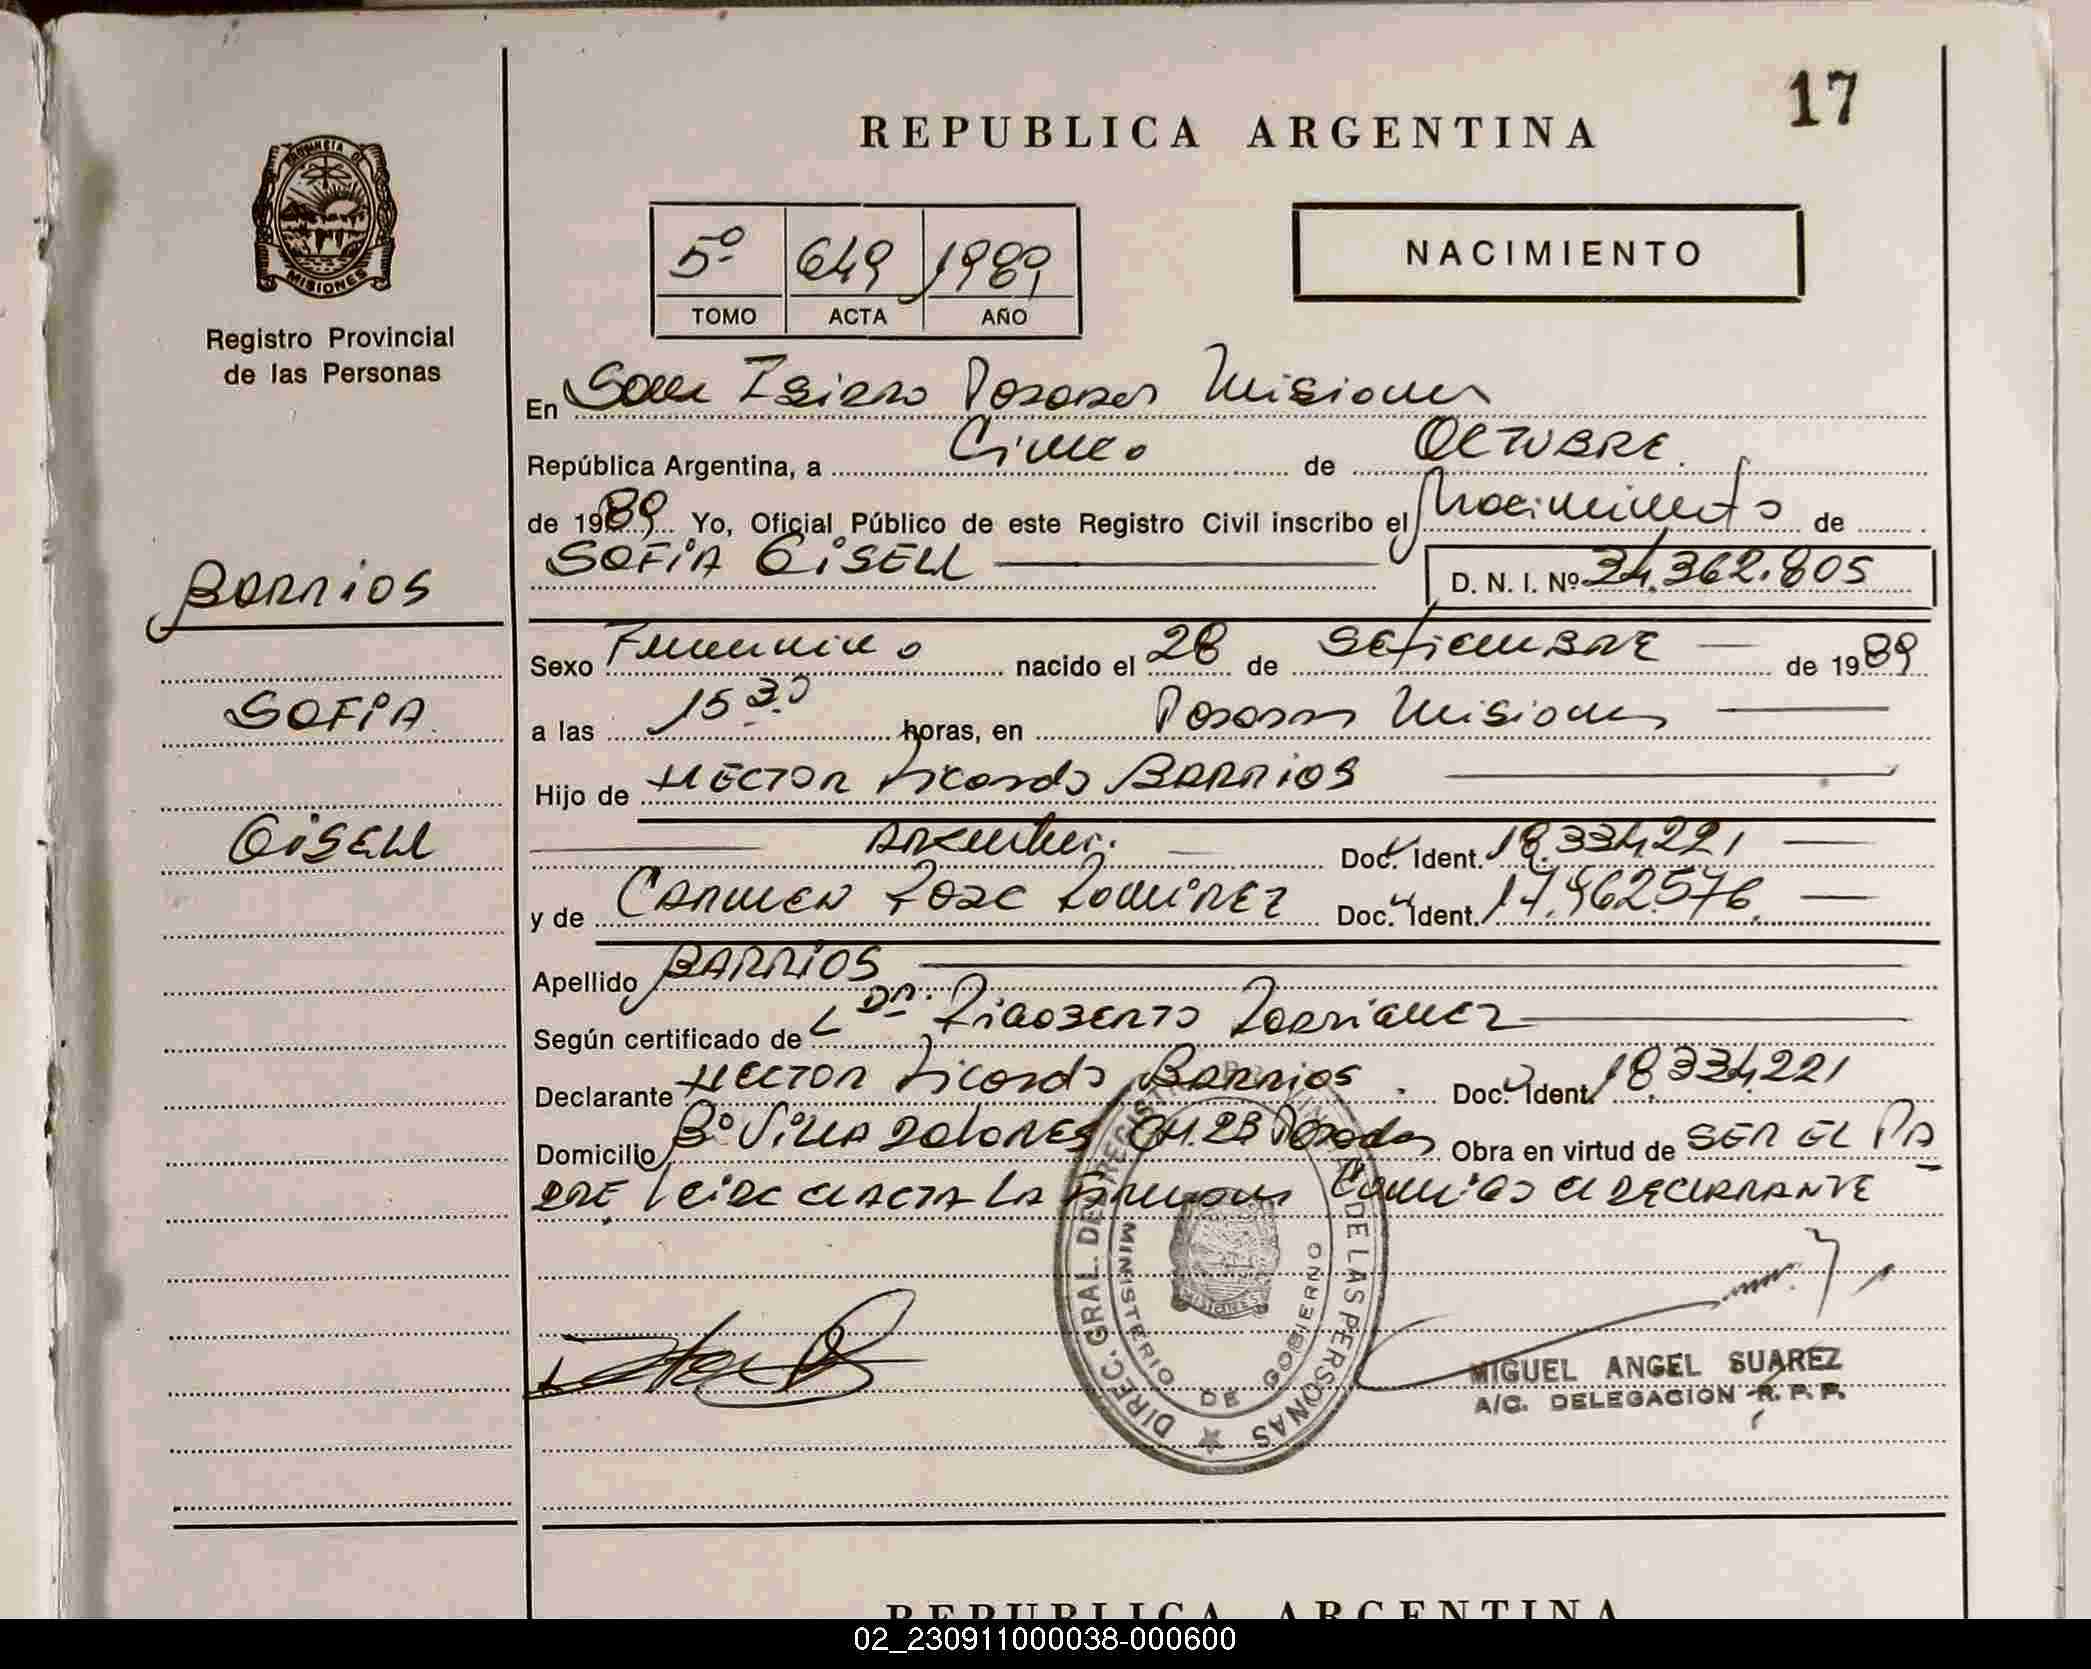 17
REPUBLICA ARGENTINA
PROVINCIA DE
MISIONES
Registro Provincial
de las Personas
5º 649 1989
TOMO ACTA AÑO
NACIMIENTO
En San Isidro Posadas Misiones
República Argentina, a Cinco de OCTUBRE.
de 1989 Yo, Oficial Público de este Registro Civil inscribo el Nacimiento de
SOFIA GISELL D. N. I. Nº 34.362.805
BARRIOS
SOFIA
GISELL
Sexo Femenino nacido el 28 de SETIEMBRE de 1989
a las 15 30 horas, en Posadas Misiones
Hijo de HECTOR Ricardo BARRIOS
Doc. Ident. 18.334.221
y de CARMEN ROSA Doc. Ident. 17.962.576
Apellido BARRIOS
Según certificado de DR. RIGOBERTO
Declarante HECTOR Ricardo BARRIOS Doc. Ident. 18.334.221
Domicilio Bº VILLA DOLORES CH. 23 Posadas Obra en virtud de SER EL PA
DRE LEIDA EL ACTA LA FIRMAN Conmigo el DECLARANTE
DIREC. GRAL. DEL REGISTRO PROVINCIAL DE LAS PERSONAS
MINISTERIO DE GOBIERNO
MISIONES
MIGUEL ANGEL SUAREZ
A/C. DELEGACION R. P. P.
REPUBLICA ARGENTINA
02_230911000038-000600